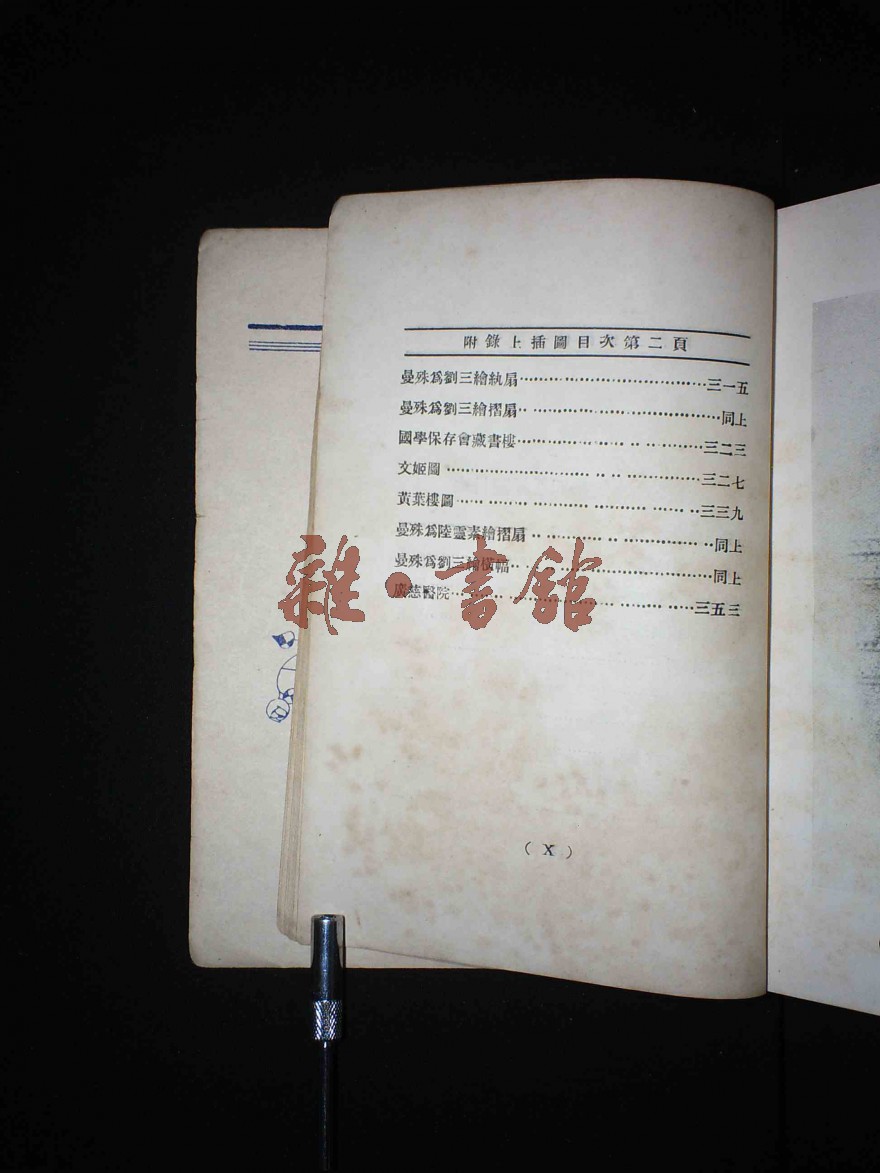 附錄上插圖目次第二頁
曼殊爲劉三繪紈扇……三一五
曼殊爲劉三繪摺扇……同上
國學保存會藏書樓……三二三
文姬圖……三二七
黃葉樓圖……三三九
曼殊爲陸靈素繪摺扇……同上
曼殊爲劉三繪橫幅……同上
廣慈醫院……三五三
雜·書館
（X）